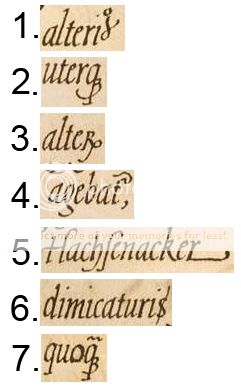 1. alteriꝰ
2. uterqꝫ
3. alteꝝ
4. agebat᷑,
5. Hachſſenacker
6. dimicaturis
7. quoq̃ꝫ